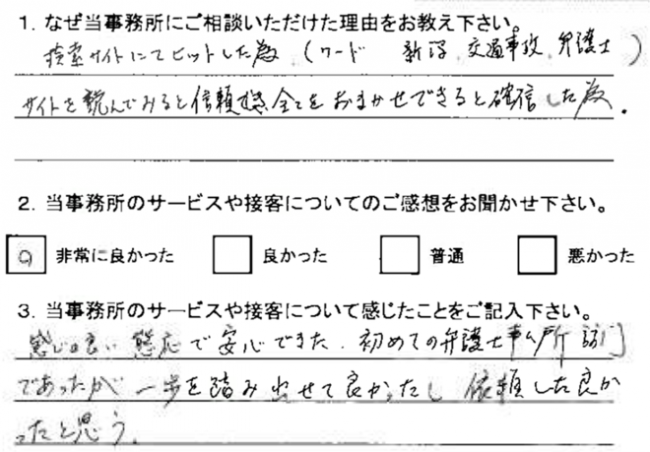 1. なぜ当事務所にご相談いただけた理由をお教え下さい。
検索サイトにてヒットした為 (ワード 新潟、交通事故、弁護士)
サイトを読んでみると信頼 全てをおまかせできると確信した為。
2. 当事務所のサービスや接客についてのご感想をお聞かせ下さい。
非常に良かった 良かった 普通 悪かった
3. 当事務所のサービスや接客について感じたことをご記入下さい。
感じの良い態応で安心できた、初めての弁護士事ム所訪問
であったが一歩を踏み出せて良かったし依頼した良か
ったと思う。